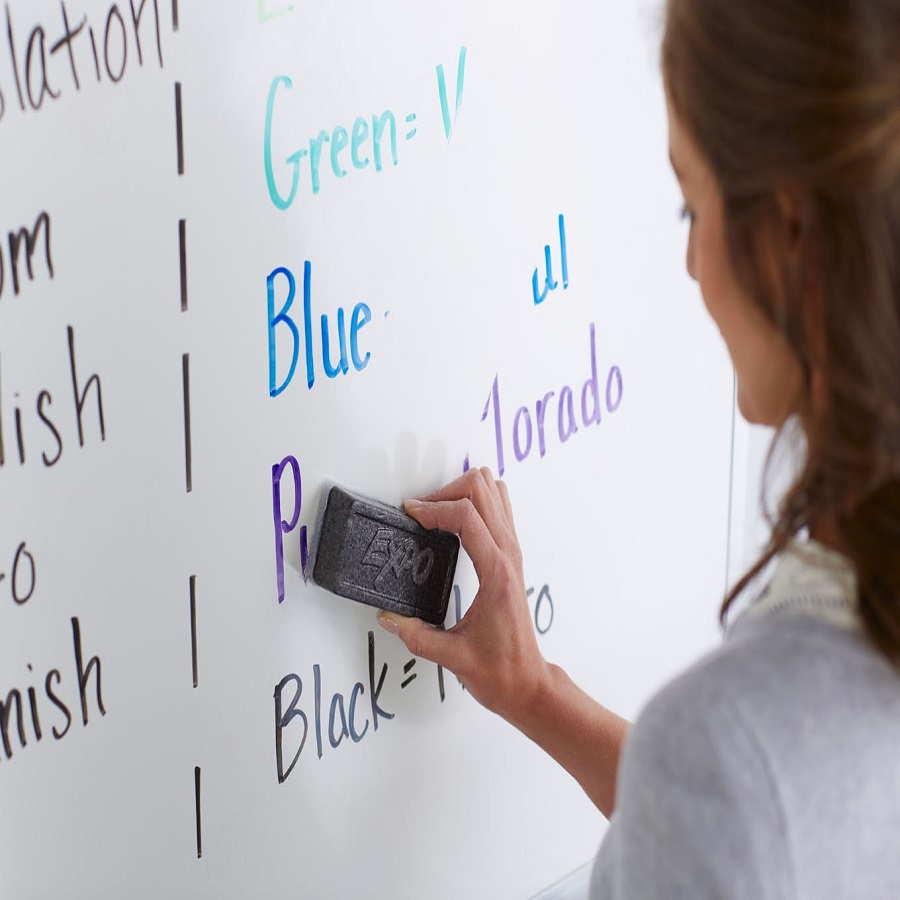 lation
om
lish
o
nish
Green= V
Blue ul
P lorado
EXPO
o
Black =